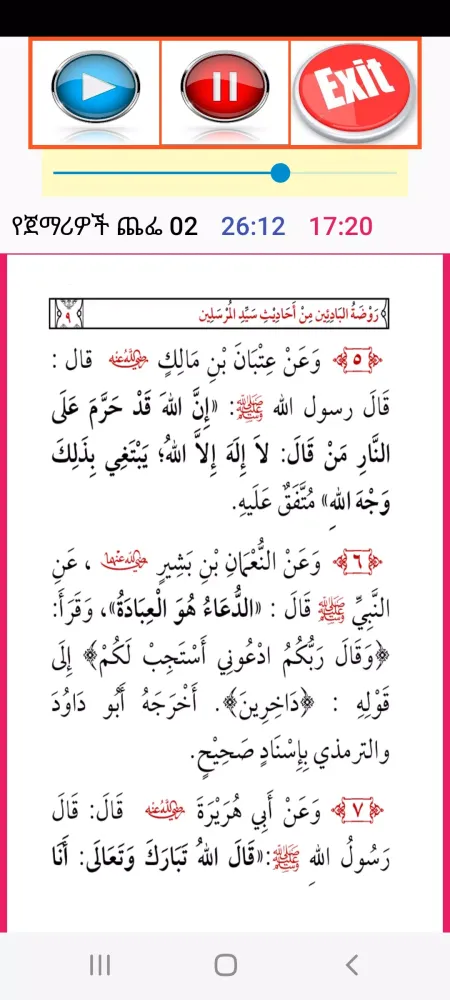 Exit
የጀማሪዎች ጨፌ 02 26:12 17:20
رَوْضَةُ البَادِئِين مِنْ أَحَادِيْثِ سَيِّدِ المُرْسَلِين ٩
٥ وَعَنْ عِتْبَانَ بْنِ مَالِكٍ رضي الله عنه قال :
قَالَ رسول الله ﷺ: «إِنَّ اللهَ قَدْ حَرَّمَ عَلَى
النَّارِ مَنْ قَالَ: لاَ إِلَهَ إِلاَّ اللهُ؛ يَبْتَغِي بِذَلِكَ
وَجْهَ اللهِ» مُتَّفَقٌ عَلَيهِ.
٦ وَعَنْ النُّعْمَانِ بْنِ بَشِيرٍ رضي الله عنهما ، عَنِ
النَّبِيِّ ﷺ قَالَ : «الدُّعَاءُ هُوَ الْعِبَادَةُ»، وَقَرَأَ:
﴿وَقَالَ رَبُّكُمُ ادْعُونِي أَسْتَجِبْ لَكُمْ﴾ إِلَى
قَوْلِهِ : ﴿دَاخِرِينَ﴾. أَخْرَجَهُ أَبُو دَاوُدَ
والترمذي بِإِسْنَادٍ صَحِيْحٍ.
٧ وَعَنْ أَبِي هُرَيْرَةَ رضي الله عنه قَالَ: قَالَ
رَسُولُ اللهِ ﷺ:«قَالَ اللهُ تَبَارَكَ وَتَعَالَى: أَنَا